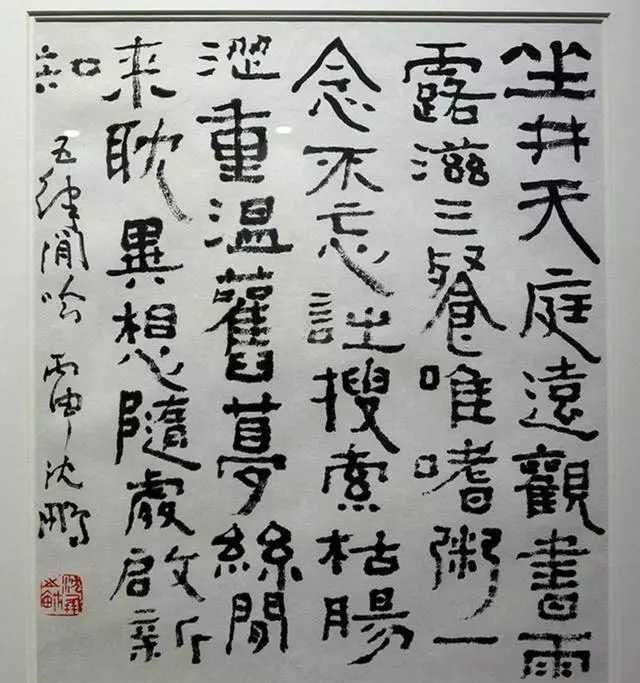 坐井天庭遠觀書雨
露滋三餐唯嗜粥一
念不忘詩搜索枯腸
澀重溫舊夢絲閒
来耽異想隨處啟新
知
五律閒吟 丙申沈鵬